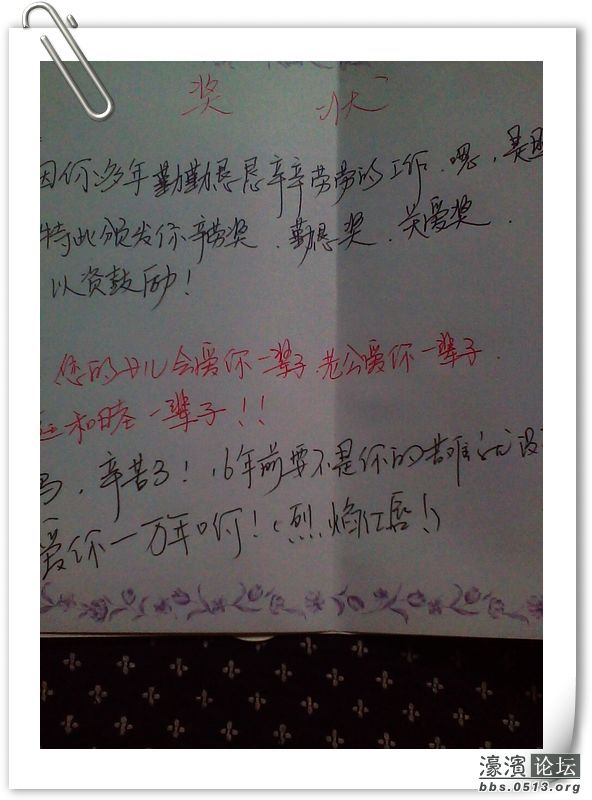 奖 状
因你多年勤勤恳恳辛辛劳劳的工作.嗯,是
特此颁发你辛劳奖.勤恳奖.关爱奖.
以资鼓励!
您的女儿会爱你一辈子 老公爱你一辈子.
和睦一辈子!!
妈,辛苦了!16年前要不是你的苦难就没
爱你一万年呵!(烈焰红唇!)
濠濱论坛
bbs.0513.org